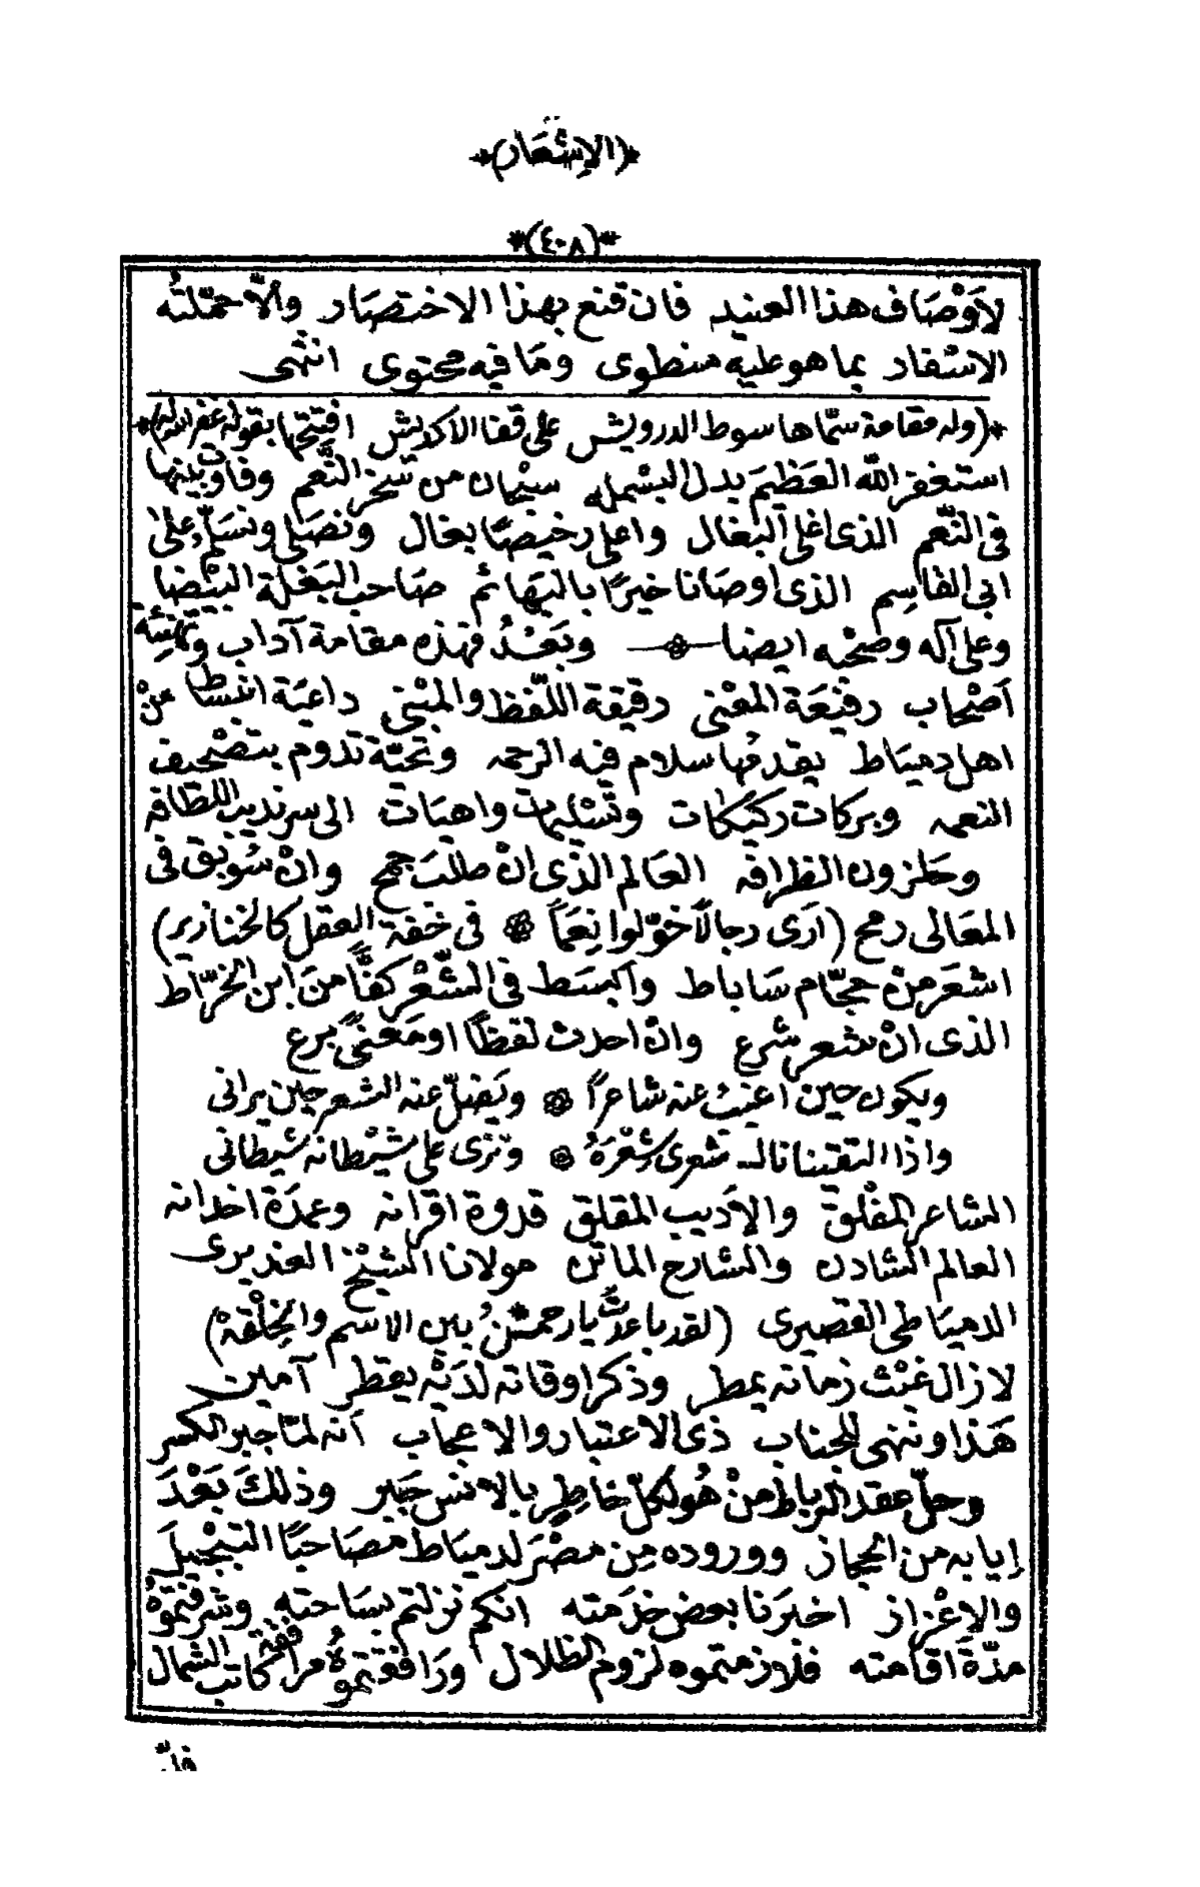 *(الإشعار)*
*(٤٠٨)*
لاَوْصَاف هذا العنيد فان قنع بهذا الاختصار والّا حمّلتُه
الاسْفار بما هو عليه منطوى ومَا فيه محتوى انتهى
*(وله مقامة سمّاها سوط الدرويش على قفا الاكديش افتتحها بقوله غفر الله له)*
استغفر اللّه العَظيمَ بدل البسْمله سبْحان من سخر النَّعم وفاوَت بينها
فى النَّعم الذى اغلى البغال واعلى رخيصًا بغال ونصَلى ونسَلّم على
ابى القاسِم الذى اوصَانا خيرًا بالبَهائم صَاحب البَغلة البيْضا
وعلى آله وصحْبه ايضا وبَعْدُ فهذه مقامة آداب
اَصْحاب رفيْعَة المعْنى دقيقة اللّفظ والمبْنى داعيَة انبسَاط منْ
اهل دميَاط يقدمُها سلام فيه الرحمه وتحيّة تدوم بتصْحيف
النعمه وبركات ركيكات وتَسْليمات واهيَات الى سرنديب اللطافه
وحلزون الظرافه العَالم الذى انْ طلبَ جمح وانْ سُوبق فى
المعَالى رمح (ارَى رجالاً خوّلوا نِعَماً * فى خفة العقل كالخنازير)
اشعَر منْ حجّام سَاباط واَبسَط فى الشّعْر كفًّا منَ ابن الخرّاط
الذى انْ شعر شرع وانْ احدث لفظًا او مَعنىً برع
ويكون حين اغيبُ عنه شاعراً * ويَضلّ عنه الشعر حين يرانى
واذا التقينا نالـ شعرى شِعْرَهُ * ونزى على شيْطانه شيطانى
الشاعر المفْلق والاَديب المقلق قدوة اقرانه وعمدَة اخدانه
العالم الشادن والشارح الماتن مولانا الشيْخ العنديرى
الدميَاطى القصيرى (لقد باعدتَّ يا رحمٰنُ بين الاسم والخِلْقهْ)
لا زال غيْث زمانه يمطر وذكر اوقاته لدَيْه يقطر آمين
هَذا وننهى للجناب ذى الاعتبار والاعجاب اَنه لمّا جبر الكسر
وحلّ عقد الرباط منْ هُو لكلّ خاطِر بالانس جَبر وذلكَ بَعْدَ
إيابه من الحجاز ووروده مِن مصْرَ لدميَاط مصَاحبًا التبجيلَ
والاعْزاز اخبرَنا بعض خدَمته انكم نزلتم بسَاحته وشرفتموْهُ
مدّةَ اقامته فلازمتموه لزوم الظلال ورَافقتموْهُ مرافقة كاتب الشمال